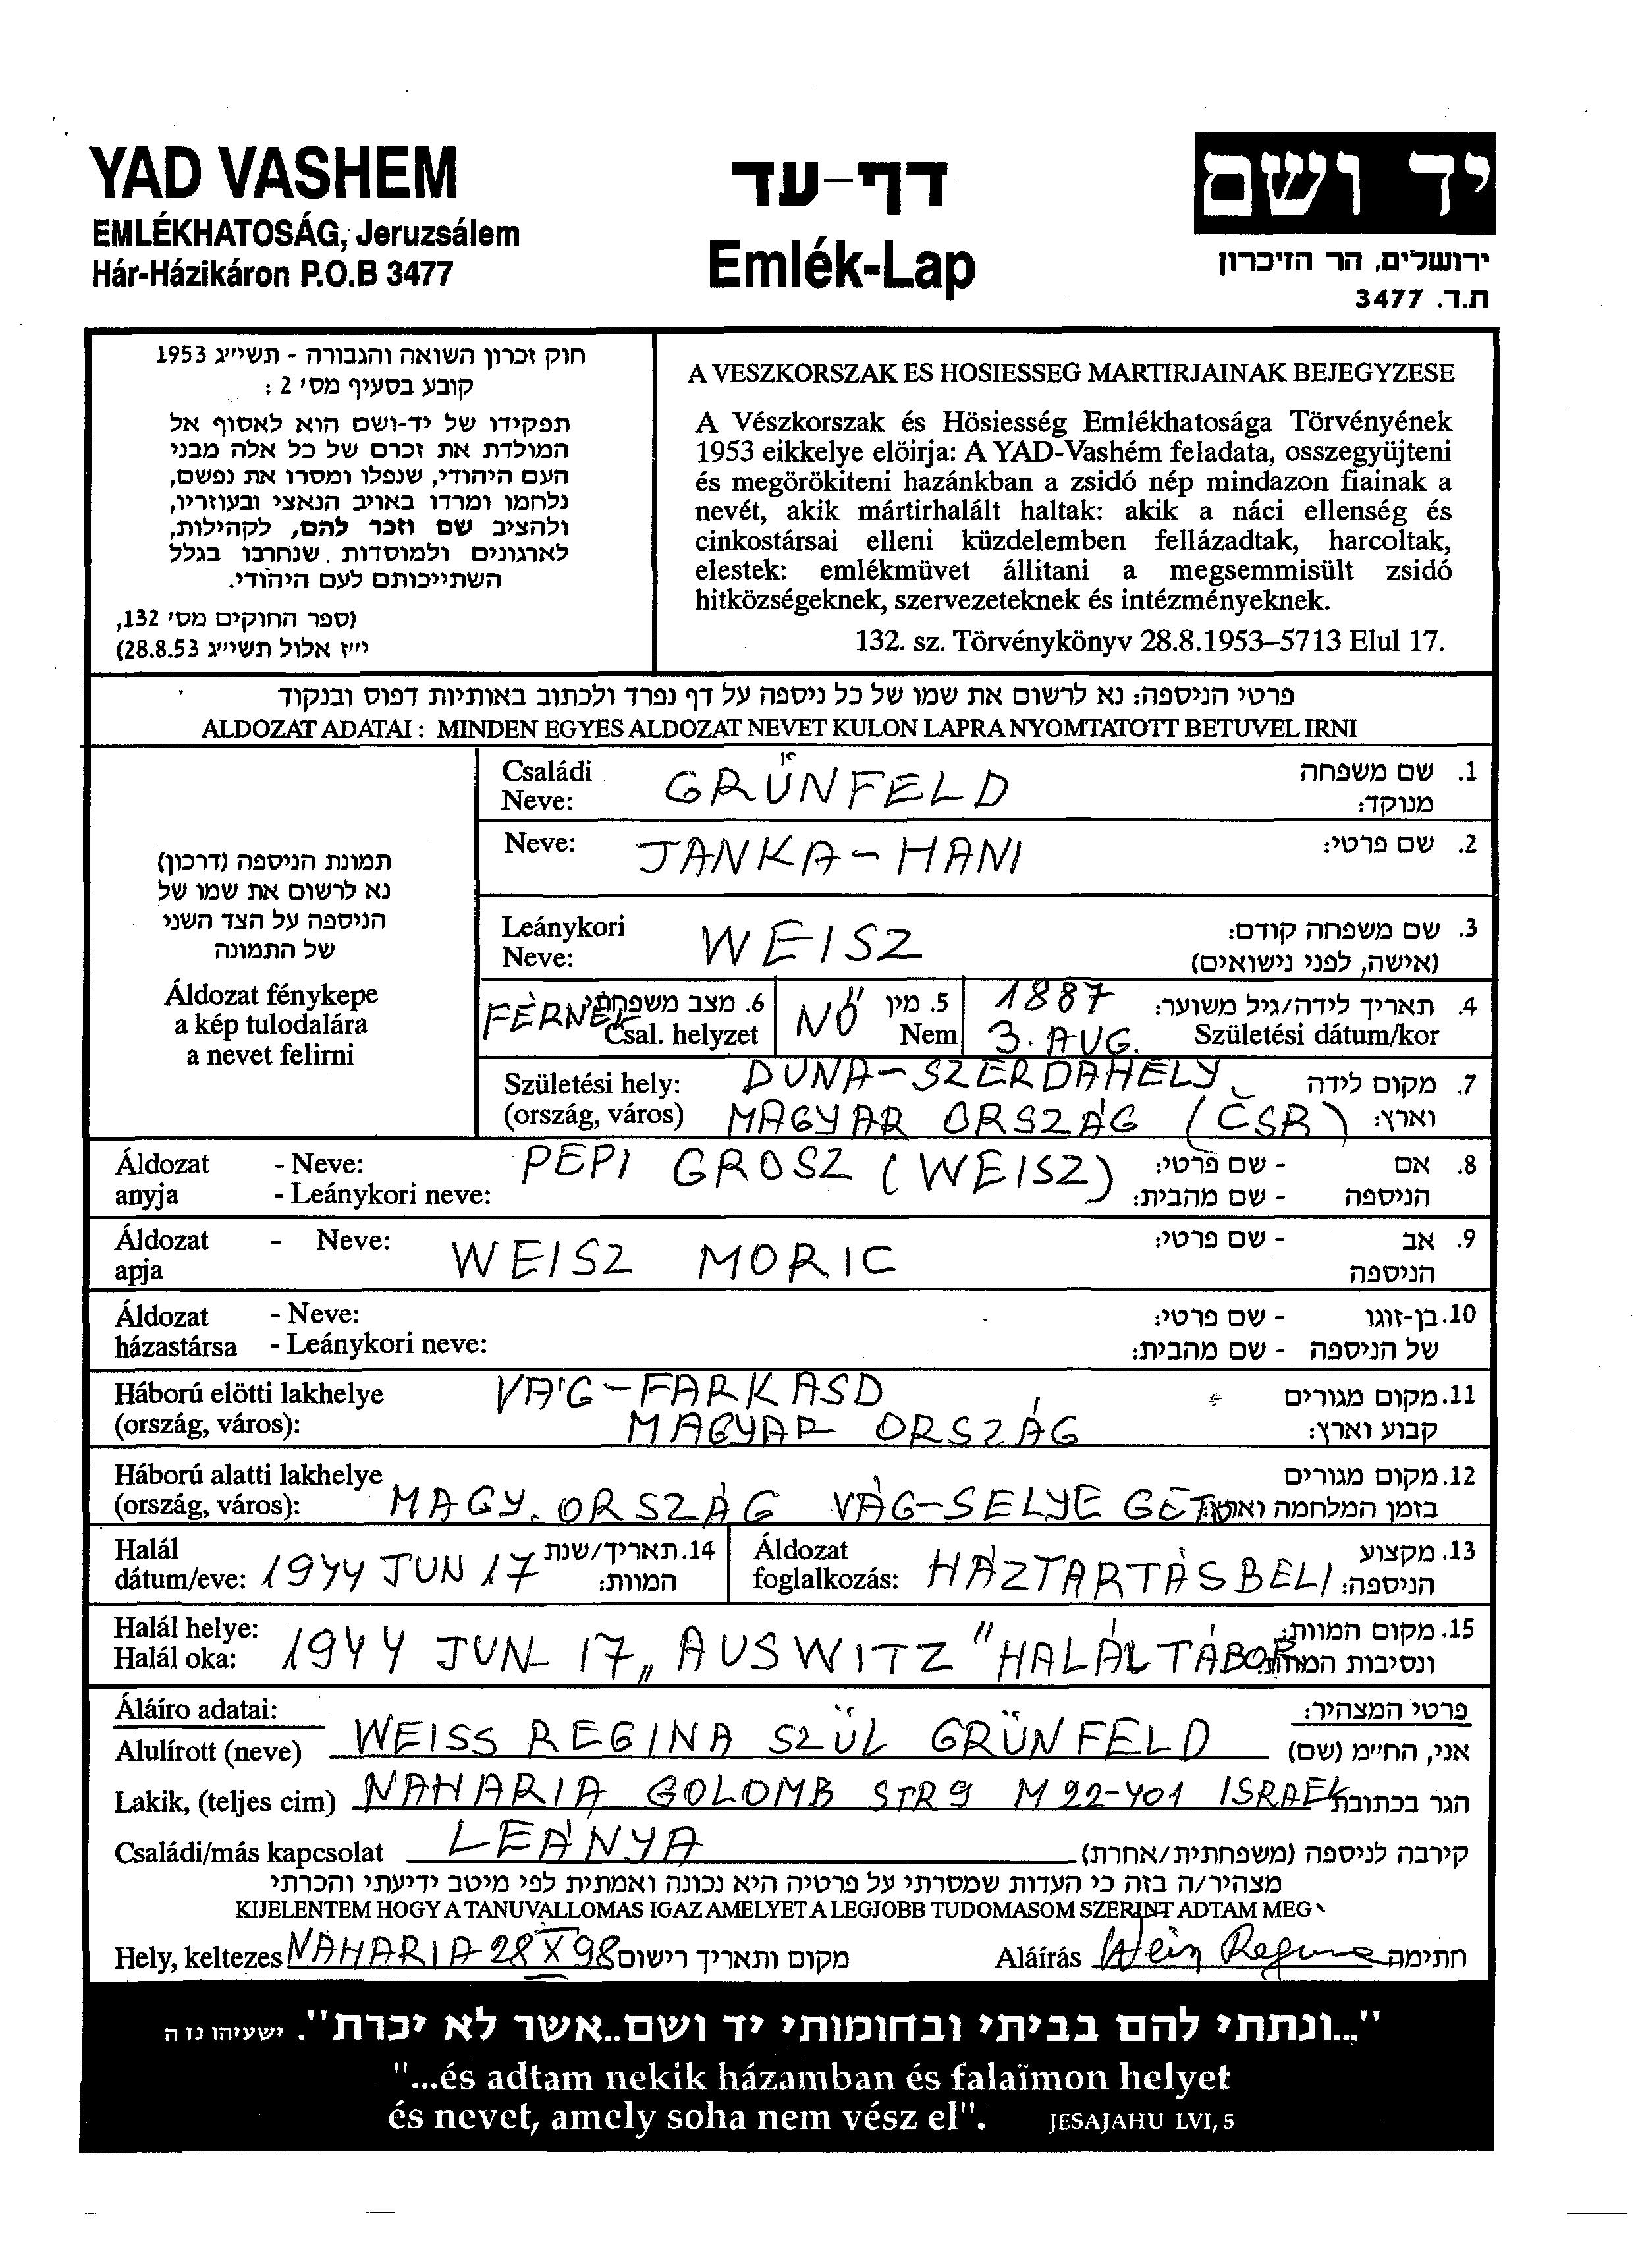 YAD VASHEM
EMLÉKHATOSÁG, Jeruzsálem
Hár-Házikáron P.O.B 3477
דף-עד
Emlék-Lap
יד ושם
ירושלים, הר הזיכרון
ת.ד. 3477
חוק זכרון השואה והגבורה - תשי״ג 1953
קובע בסעיף מס׳ 2 :
תפקידו של יד-ושם הוא לאסוף אל
המולדת את זכרם של כל אלה מבני
העם היהודי, שנפלו ומסרו את נפשם,
נלחמו ומרדו באויב הנאצי ובעוזריו,
ולהציב שם וזכר להם, לקהילות,
לארגונים ולמוסדות שנחרבו בגלל
השתייכותם לעם היהודי.
(ספר החוקים מס׳ 132,
י״ז אלול תשי״ג 28.8.53)
A VESZKORSZAK ES HOSIESSEG MARTIRJAINAK BEJEGYZESE
A Vészkorszak és Hösiesség Emlékhatosága Törvényének
1953 eikkelye elöirja: A YAD-Vashém feladata, osszegyüjteni
és megörökiteni hazánkban a zsidó nép mindazon fiainak a
nevét, akik mártirhalált haltak: akik a náci ellenség és
cinkostársai elleni küzdelemben fellázadtak, harcoltak,
elestek: emlékmüvet állitani a megsemmisült zsidó
hitközségeknek, szervezeteknek és intézményeknek.
132. sz. Törvénykönyv 28.8.1953–5713 Elul 17.
פרטי הניספה: נא לרשום את שמו של כל ניספה על דף נפרד ולכתוב באותיות דפוס ובנקוד
ALDOZAT ADATAI : MINDEN EGYES ALDOZAT NEVET KULON LAPRA NYOMTATOTT BETUVEL IRNI
תמונת הניספה (דרכון)
נא לרשום את שמו של
הניספה על הצד השני
של התמונה
Áldozat fénykepe
a kép tulodalára
a nevet felirni
Családi Neve: GRÜNFELD 1. שם משפחה מנוקד:
Neve: JANKA-HANI 2. שם פרטי:
Leánykori Neve: WEISZ 3. שם משפחה קודם: (אישה, לפני נישואים)
FÉRNÉL 6. מצב משפחתי Csal. helyzet
NŐ 5. מין Nem
1887 3. AUG. 4. תאריך לידה/גיל משוער: Születési dátum/kor
Születési hely: DUNA-SZERDAHELY 7. מקום לידה
(ország, város) MAGYAR ORSZÁG (ČSR) וארץ:
Áldozat - Neve: PEPI GROSZ (WEISZ) - שם פרטי: 8. אם
anyja - Leánykori neve: - שם מהבית: הניספה
Áldozat - Neve: WEISZ MORIC - שם פרטי: 9. אב
apja הניספה
Áldozat - Neve: - שם פרטי: 10. בן-זוגו
házastársa - Leánykori neve: - שם מהבית: של הניספה
Háború elötti lakhelye VÁG-FARKASD 11. מקום מגורים
(ország, város): MAGYAR ORSZÁG קבוע וארץ:
Háború alatti lakhelye 12. מקום מגורים
(ország, város): MAGY. ORSZÁG VÁG-SELYE GETTO בזמן המלחמה וארץ:
Halál dátum/eve: 1944 JUN 17 14. תאריך/שנת המוות:
Áldozat foglalkozás: HÁZTARTÁSBELI 13. מקצוע הניספה:
Halál helye: 15. מקום המוות:
Halál oka: 1944 JUN 17 „AUSWITZ" HALÁLTÁBOR ונסיבות המוות:
Áláíro adatai: פרטי המצהיר:
Alulírott (neve) WEISS REGINA SZÜL GRÜNFELD אני, הח״מ (שם)
Lakik, (teljes cim) NAHARIA GOLOMB STR 9 M 22-401 ISRAEL הגר בכתובת
Családi/más kapcsolat LEÁNYA קירבה לניספה (משפחתית/אחרת)
מצהיר/ה בזה כי העדות שמסרתי על פרטיה היא נכונה ואמתית לפי מיטב ידיעתי והכרתי
KIJELENTEM HOGY A TANUVALLOMAS IGAZ AMELYET A LEGJOBB TUDOMASOM SZERINT ADTAM MEG
Hely, keltezes NAHARIA 28 X 98 מקום ותאריך רישום Aláírás Weiss Regina חתימה
"...ונתתי להם בביתי ובחומותי יד ושם..אשר לא יכרת". ישעיהו נז ה
"...és adtam nekik házamban és falaïmon helyet
és nevet, amely soha nem vész el". JESAJAHU LVI, 5